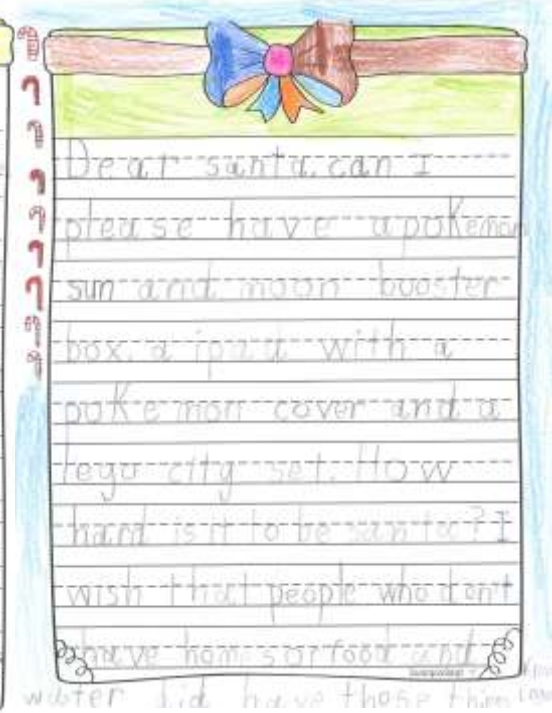 Dear santa. can I
please have a pokemon
sun and moon booster
box, a ipad with a
poke mon cover and a
lego city set. How
hard is it to be santa? I
wish that people who don't
have homes or food and
water did have those